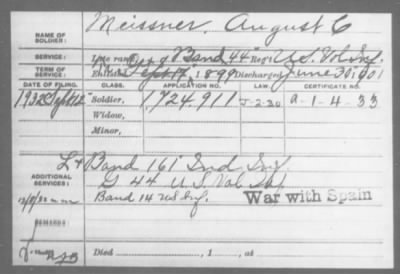 NAME OF SOLDIER: Meissner, August C
SERVICE: Late rank of Band 44" Reg't U.S. Vol Inf.
TERM OF SERVICE: Enlisted Sept 17, 1899 Discharged June 30, 1901
DATE OF FILING. CLASS. APPLICATION NO. LAW. CERTIFICATE NO.
1932 Sept 12 Soldier, 1,724,911 J-2-30 A-1-4-33
Widow,
Minor,
ADDITIONAL SERVICES: L & Band 161" Ind Inf
G 44 U.S. Vol Inf
Band 14 US Inf. War with Spain
REMARKS:
Died , 1 , at